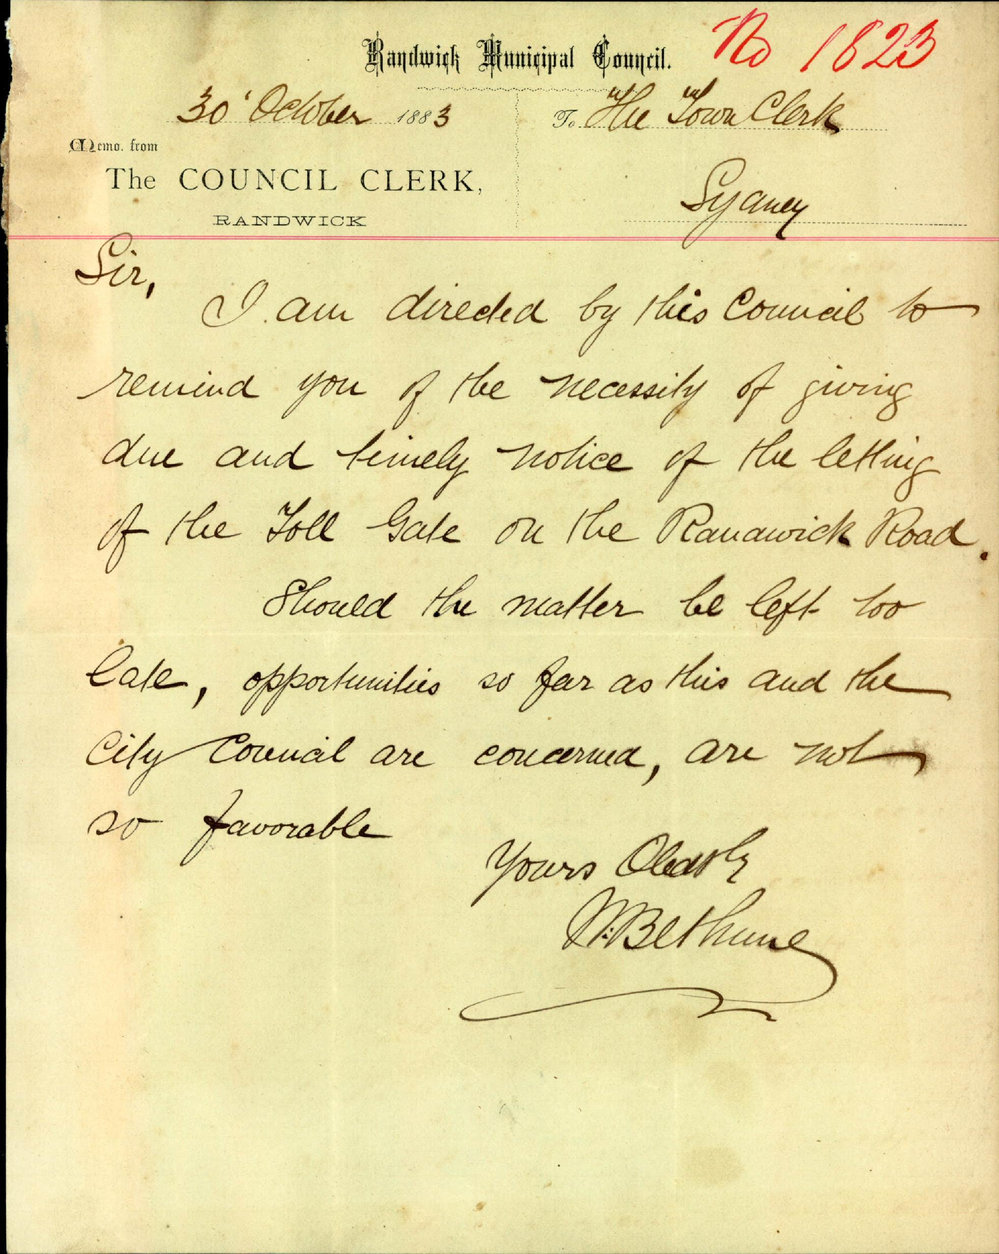 Randwick Municipal Council.
No 1823
30' October 1883
To The Town Clerk
Memo. from
The COUNCIL CLERK,
Sydney
RANDWICK
Sir,
I am directed by this Council to
remind you of the necessity of giving
due and timely notice of the letting
of the Toll Gate on the Randwick Road.
Should the matter be left too
late, opportunities so far as this and the
City Council are concerned, are not
so favorable
Yours Obedtly
Bethune